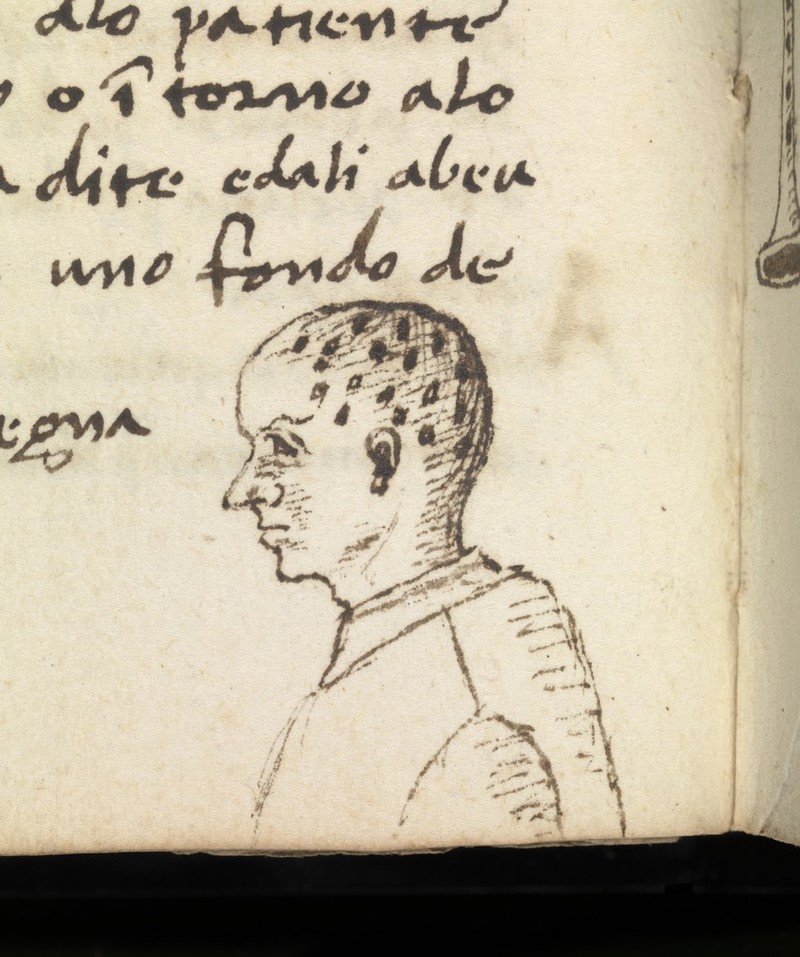 alo patiente
o o ī torno alo
a dite edali abeu
uno fondo de
egna